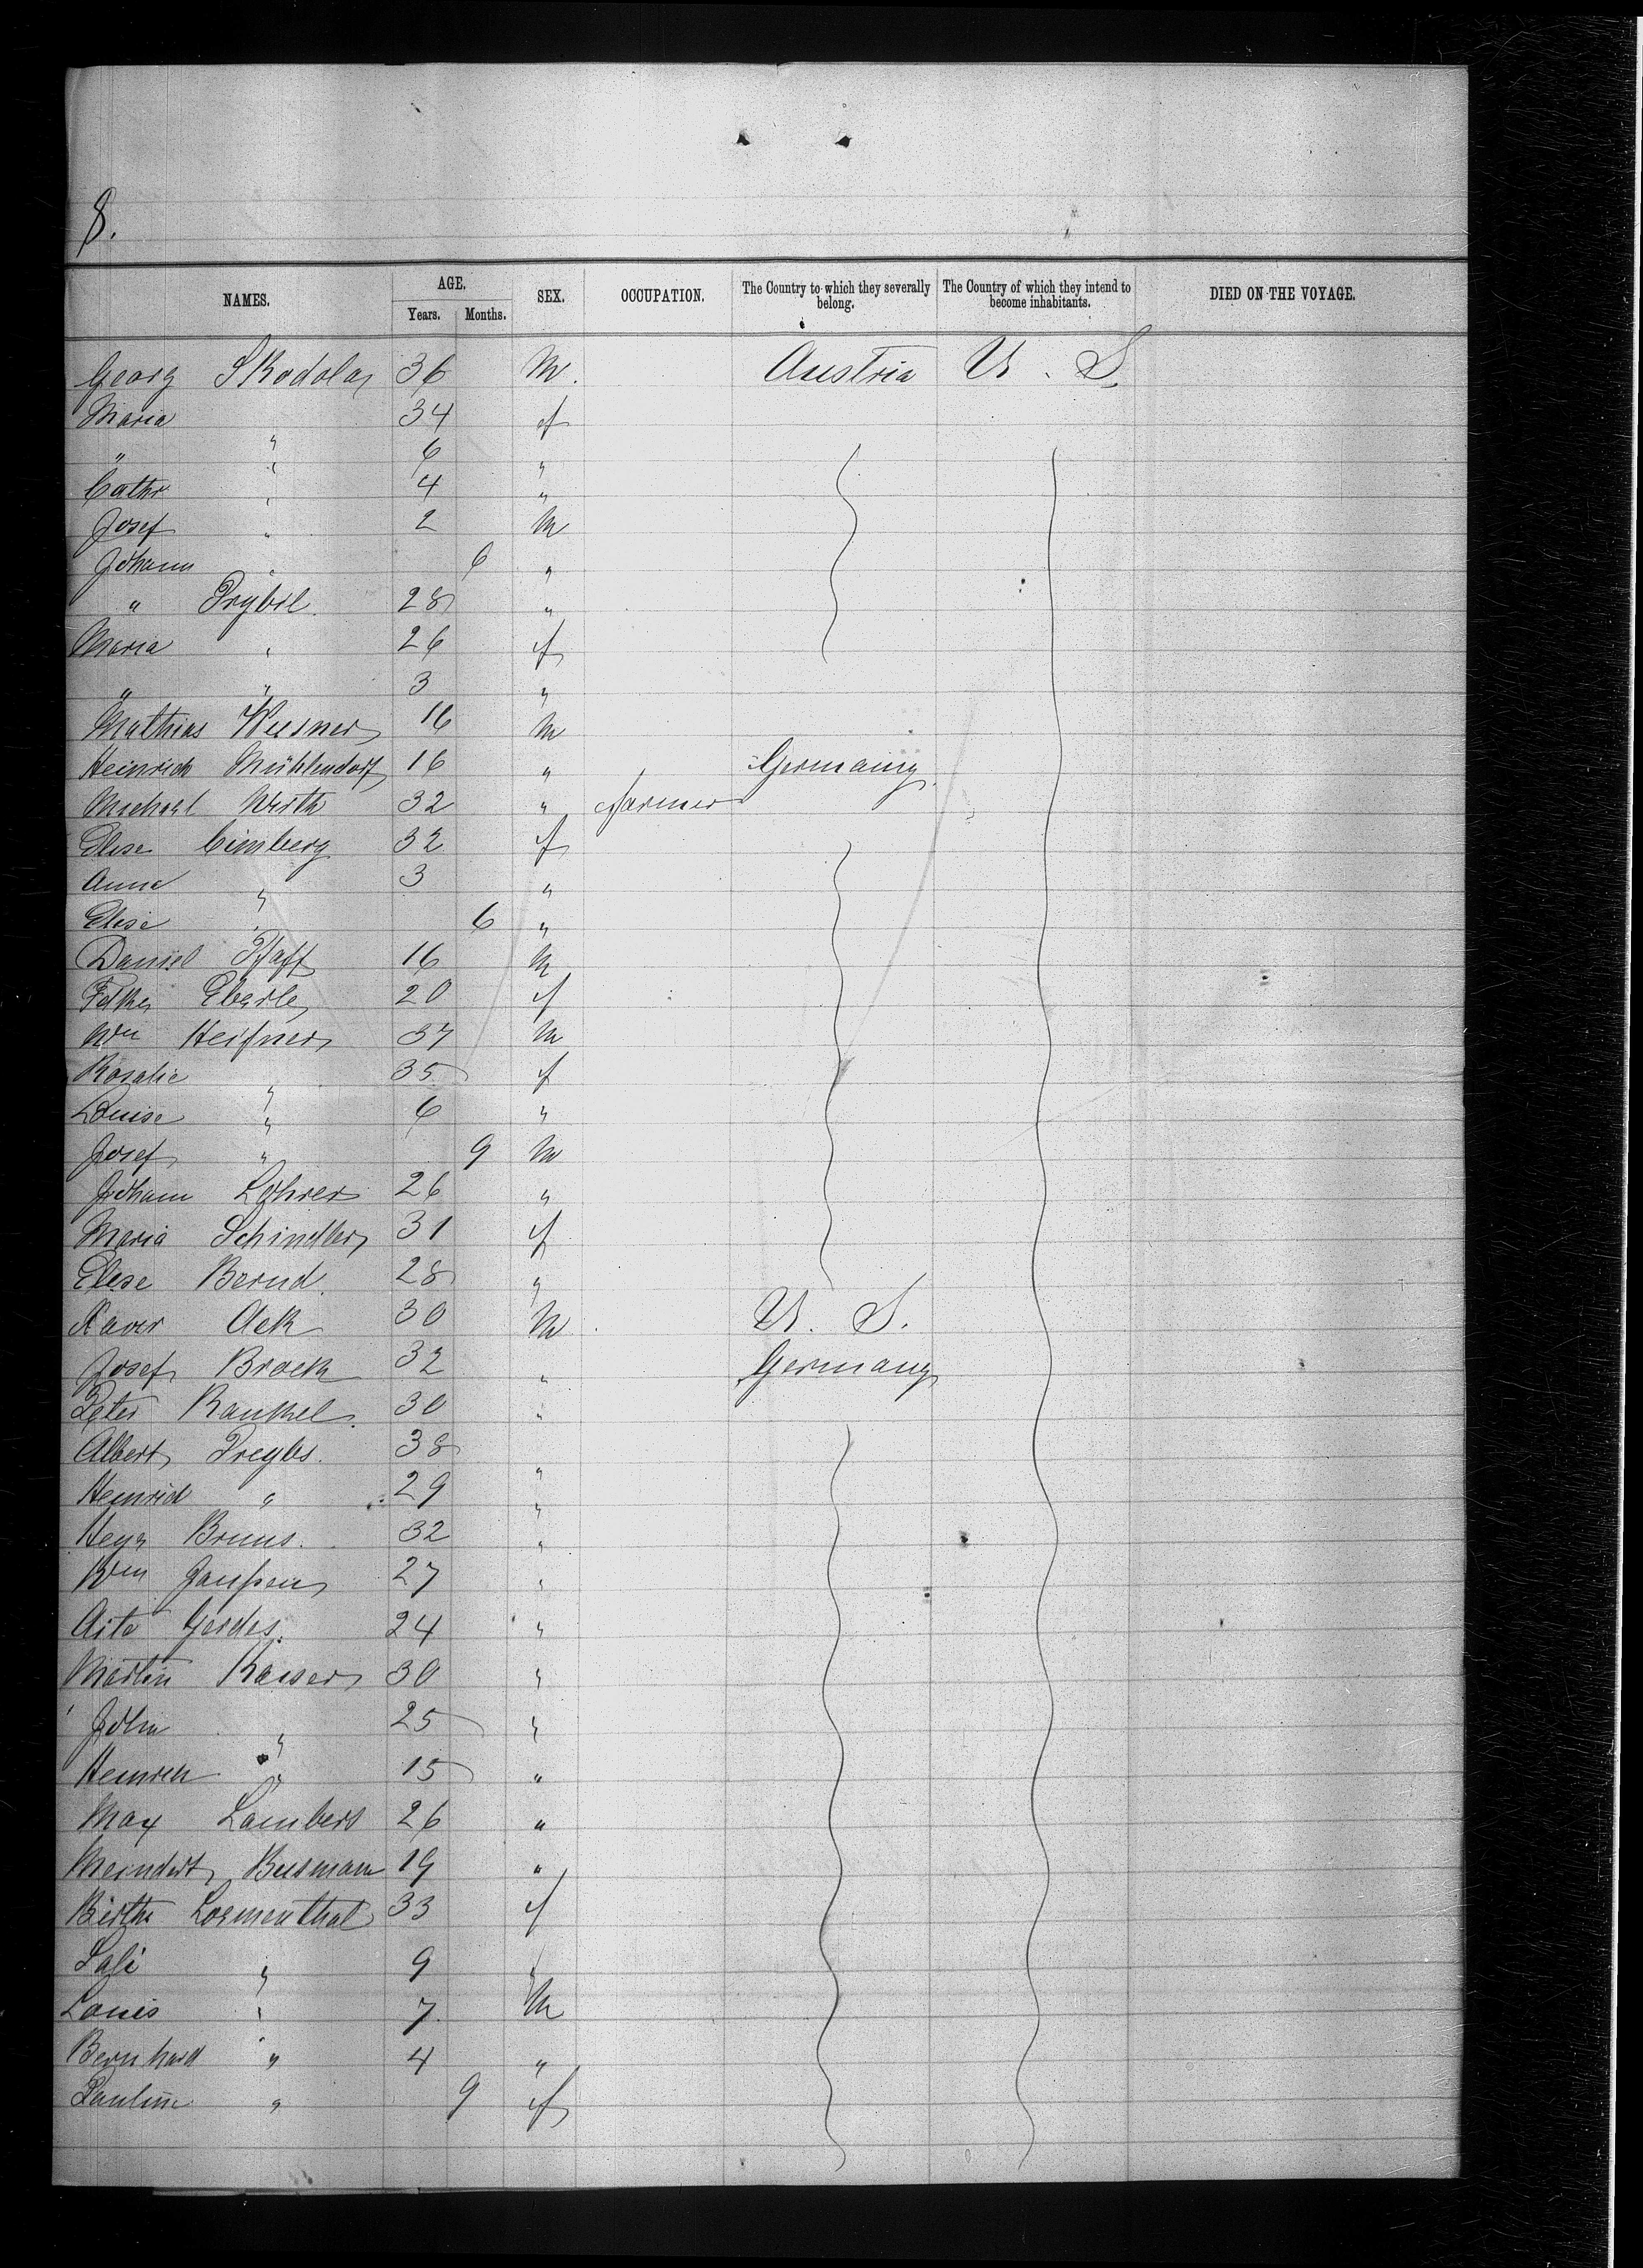 8.
NAMES. AGE. Years. Months. SEX. OCCUPATION. The Country to which they severally belong. The Country of which they intend to become inhabitants. DIED ON THE VOYAGE.
Georg Skodola 36 M. Austria U. S.
Maria " 34 f
" " 6 "
Cathr " 4 "
Josef " 2 M
Johann " 6 "
" Prybil 28 "
Maria " 26 f
" " 3 "
Mathias Wiesner 16 M
Heinrich Mühlendorf 16 " Germany
Michael Wirth 32 " farmer
Elise Cimberg 32 f
Anna " 3 "
Elise " 6 "
Daniel Pfaff 16 M
Eberle 20 f
Wm Heifner 37 M
Rosalie " 35 f
Louise " 6 "
Josef " 9 M
Johann Lohrer 26 "
Maria Schindler 31 f
Elise Bernd. 28 "
Xaver Ack 30 M U. S.
Josef Brock 32 " Germany
Peter Kankel. 30 "
Albert Freybs. 38 "
Heinrich " 29 "
Heye Bruns. 32 "
Wm Janssen 27 "
Aite Gerdes. 24 "
Martin Kaiser 30 "
John " 25 "
Heinrich " 15 "
Max Lambert 26 "
Meindert Busmann 19 "
Bertha Loewenthal 33 f
Sali " 9 "
Louis " 7 M
Bernhard " 4 "
Pauline " 9 f